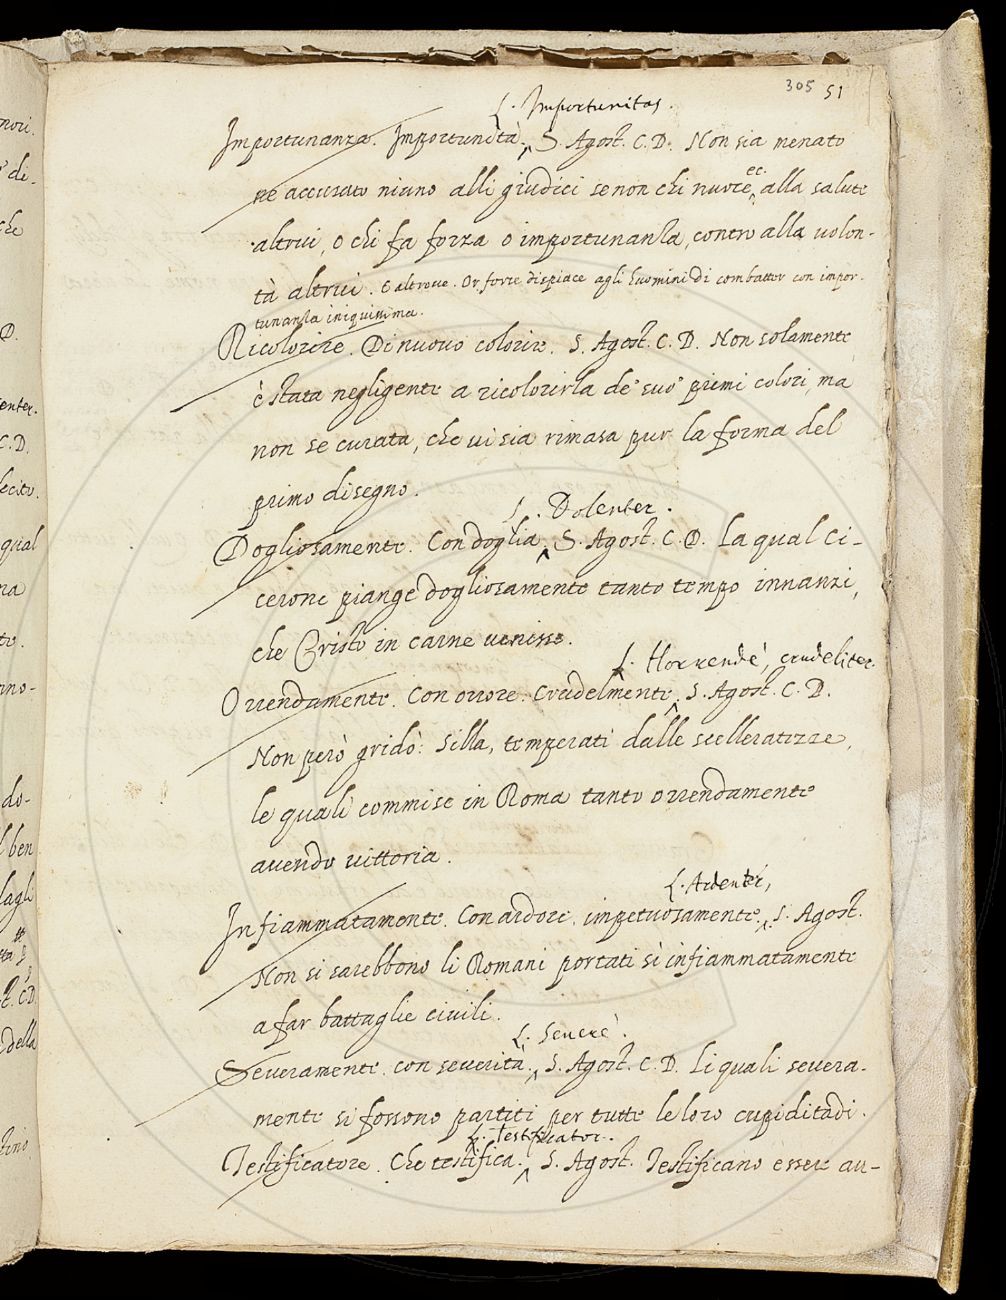 305 51
L. Importunitas.
Importunanza. Importunità. S. Agost. C. D. Non sia menato
ne accusato niuno alli giudici se non chi nuoce ec. alla salute
altrui, o chi fa forza o importunanza, contro alla volon-
tà altrui. E altrove. Or forse dispiace agli huomini di combatter con impor-
tunanza iniquissima.
Ricolorire. Di nuovo colorire. S. Agost. C. D. Non solamente
è stata negligente a ricolorirla de' suo' primi colori, ma
non se curata, che vi sia rimasa pur la forma del
primo disegno.
L. Dolenter.
Dogliosamente. Con doglia. S. Agost. C. D. La qual Ci-
cerone piange dogliosamente tanto tempo innanzi,
che Cristo in carne venisse.
L. Horrendè, crudeliter.
Orrendamente. Con orrore. Crudelmente. S. Agost. C. D.
Non però gridò: Silla, temperati dalle scelleratezze,
le quali commise in Roma tanto orrendamente
avendo vittoria.
L. Ardenter,
Infiammatamente. Con ardore. impetuosamente. S. Agost.
Non si sarebbono li Romani portati sì infiammatamente
a far battaglie civili.
L. Severè.
Severamente. con severità. S. Agost. C. D. Li quali severa-
mente si fossono partiti per tutte le loro cupiditadi.
L. Testificator.
Testificatore. Che testifica. S. Agost. Testificano essere au-